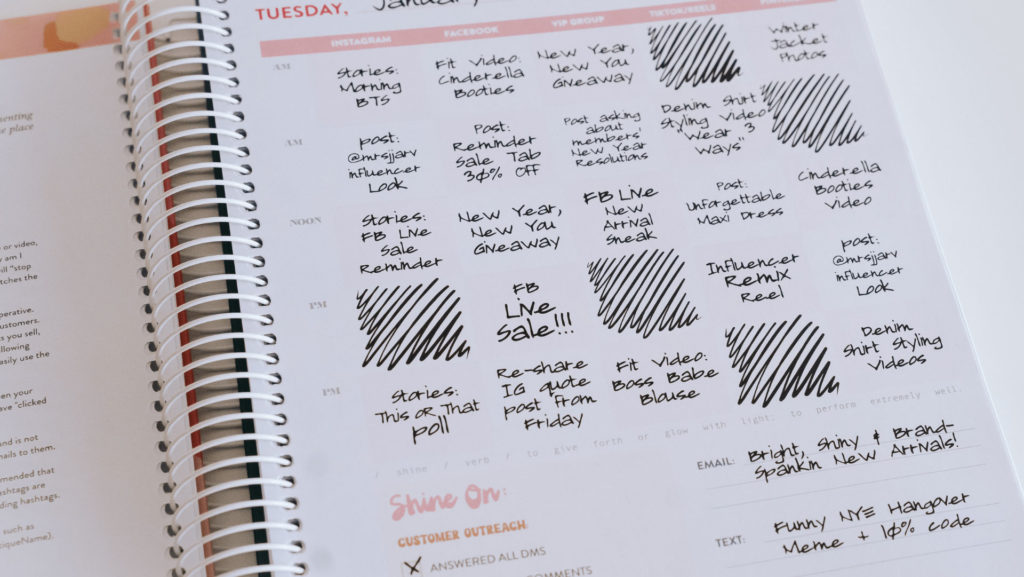 TUESDAY, January
INSTAGRAM
FACEBOOK
VIP GROUP
TIKTOK/REELS
AM
Stories:
Morning
BTS
Fit Video:
Cinderella
Booties
New Year,
New You
Giveaway
Winter
Jacket
Photos
AM
Post:
@mrsjjarv
influencer
Look
Post:
Reminder
Sale Tab
30% Off
Post asking
about
members'
New Year
Resolutions
Denim Shirt
Styling Video
"Wear 3
Ways"
NOON
Stories:
FB Live
Sale
Reminder
New Year,
New You
Giveaway
FB Live
New
Arrival
Sneak
Post:
Unforgettable
Maxi Dress
Cinderella
Booties
Video
PM
FB
Live
Sale!!!
Influencer
Remix
Reel
post:
@mrsjjarv
influencer
Look
PM
Stories:
This or That
poll
Re-share
IG quote
post from
Friday
Fit Video:
Boss Babe
Blouse
Denim
Shirt Styling
Videos
/ shine / verb / to give forth or glow with light; to perform extremely well.
Shine On:
CUSTOMER OUTREACH:
X ANSWERED ALL DMS
COMMENTS
EMAIL: Bright, Shiny & Brand-
Spankin New Arrivals!
TEXT: Funny NYE Hangover
Meme + 10% code
senting
e place
or video,
am I
"stop
tches the
perative.
ustomers.
s you sell,
llowing
asily use the
en your
ave "clicked
and is not
mails to them.
mmended that
ashtags are
ding hashtags.
such as
tiqueName).